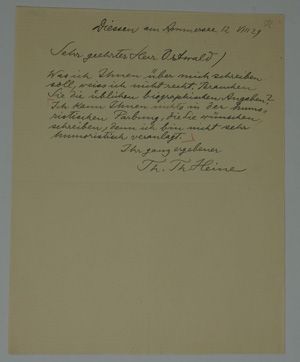 Diessen am Ammersee 12 VIII 29
Sehr geehrter Herr Ostwald!
Was ich Ihnen über mich schreiben
soll, weiss ich nicht recht. Brauchen
Sie die üblichen biographischen Angaben?
Ich kann Ihnen nichts in der humo-
ristischen Färbung, die Sie wünschen,
schreiben, denn ich bin nicht sehr
humoristisch veranlagt.
Ihr ganz ergebener
Th. Th. Heine